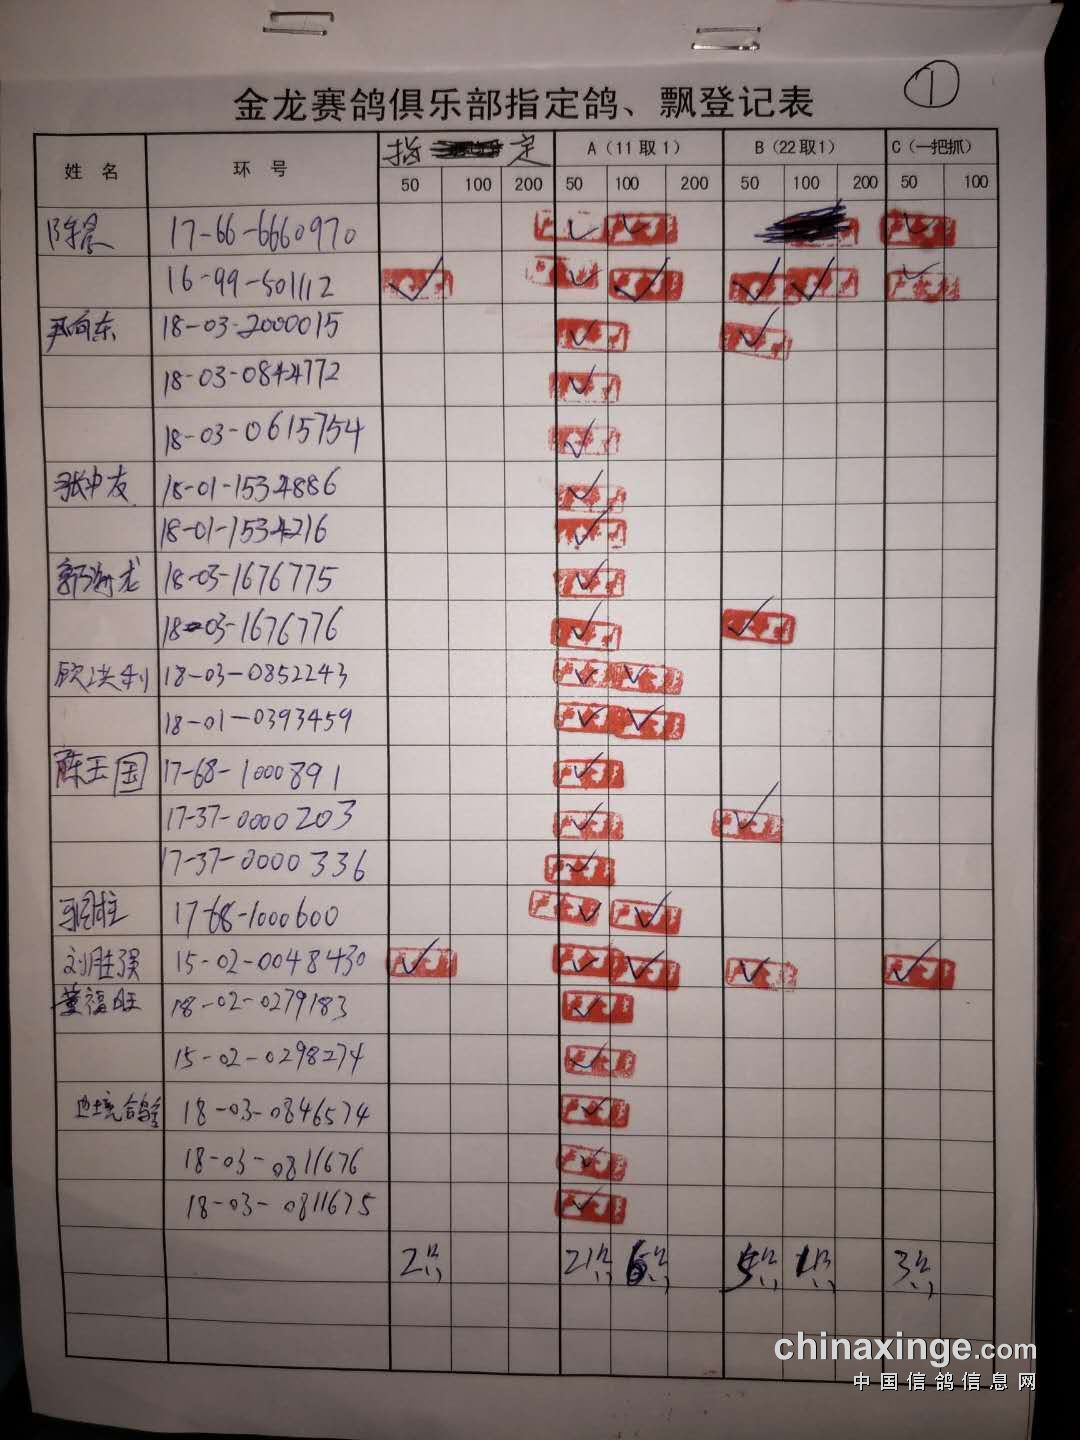 ①
金龙赛鸽俱乐部指定鸽、飘登记表
姓 名 环 号 指 定 A（11取1） B（22取1） C（一把抓）
50 100 200 50 100 200 50 100 200 50 100
17-66-6660970
16-99-501112
尹向东 18-03-2000015
18-03-0844772
18-03-0615754
张中友 18-01-1534886
18-01-1534216
郭海龙 18-03-1676775
18-03-1676776
18-03-0852243
18-01-0393459
陈玉国 17-68-1000891
17-37-0000203
17-37-0000336
17-68-1000600
刘胜强 15-02-0048430
董福旺 18-02-0279183
15-02-0298274
边境鸽舍 18-03-0846574
18-03-0811676
18-03-0811675
2只 21只 6只 5只 1只 3只
chinaxinge.com
中国信鸽信息网